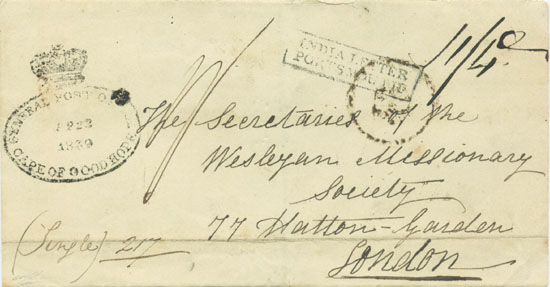 GENERAL POST O
1839
CAPE OF GOOD HOPE
INDIA LETTER
PORTSMOUTH
The Secretaries of the
Wesleyan Missionary
Society
77 Hatton-Garden
London
(Single) 217